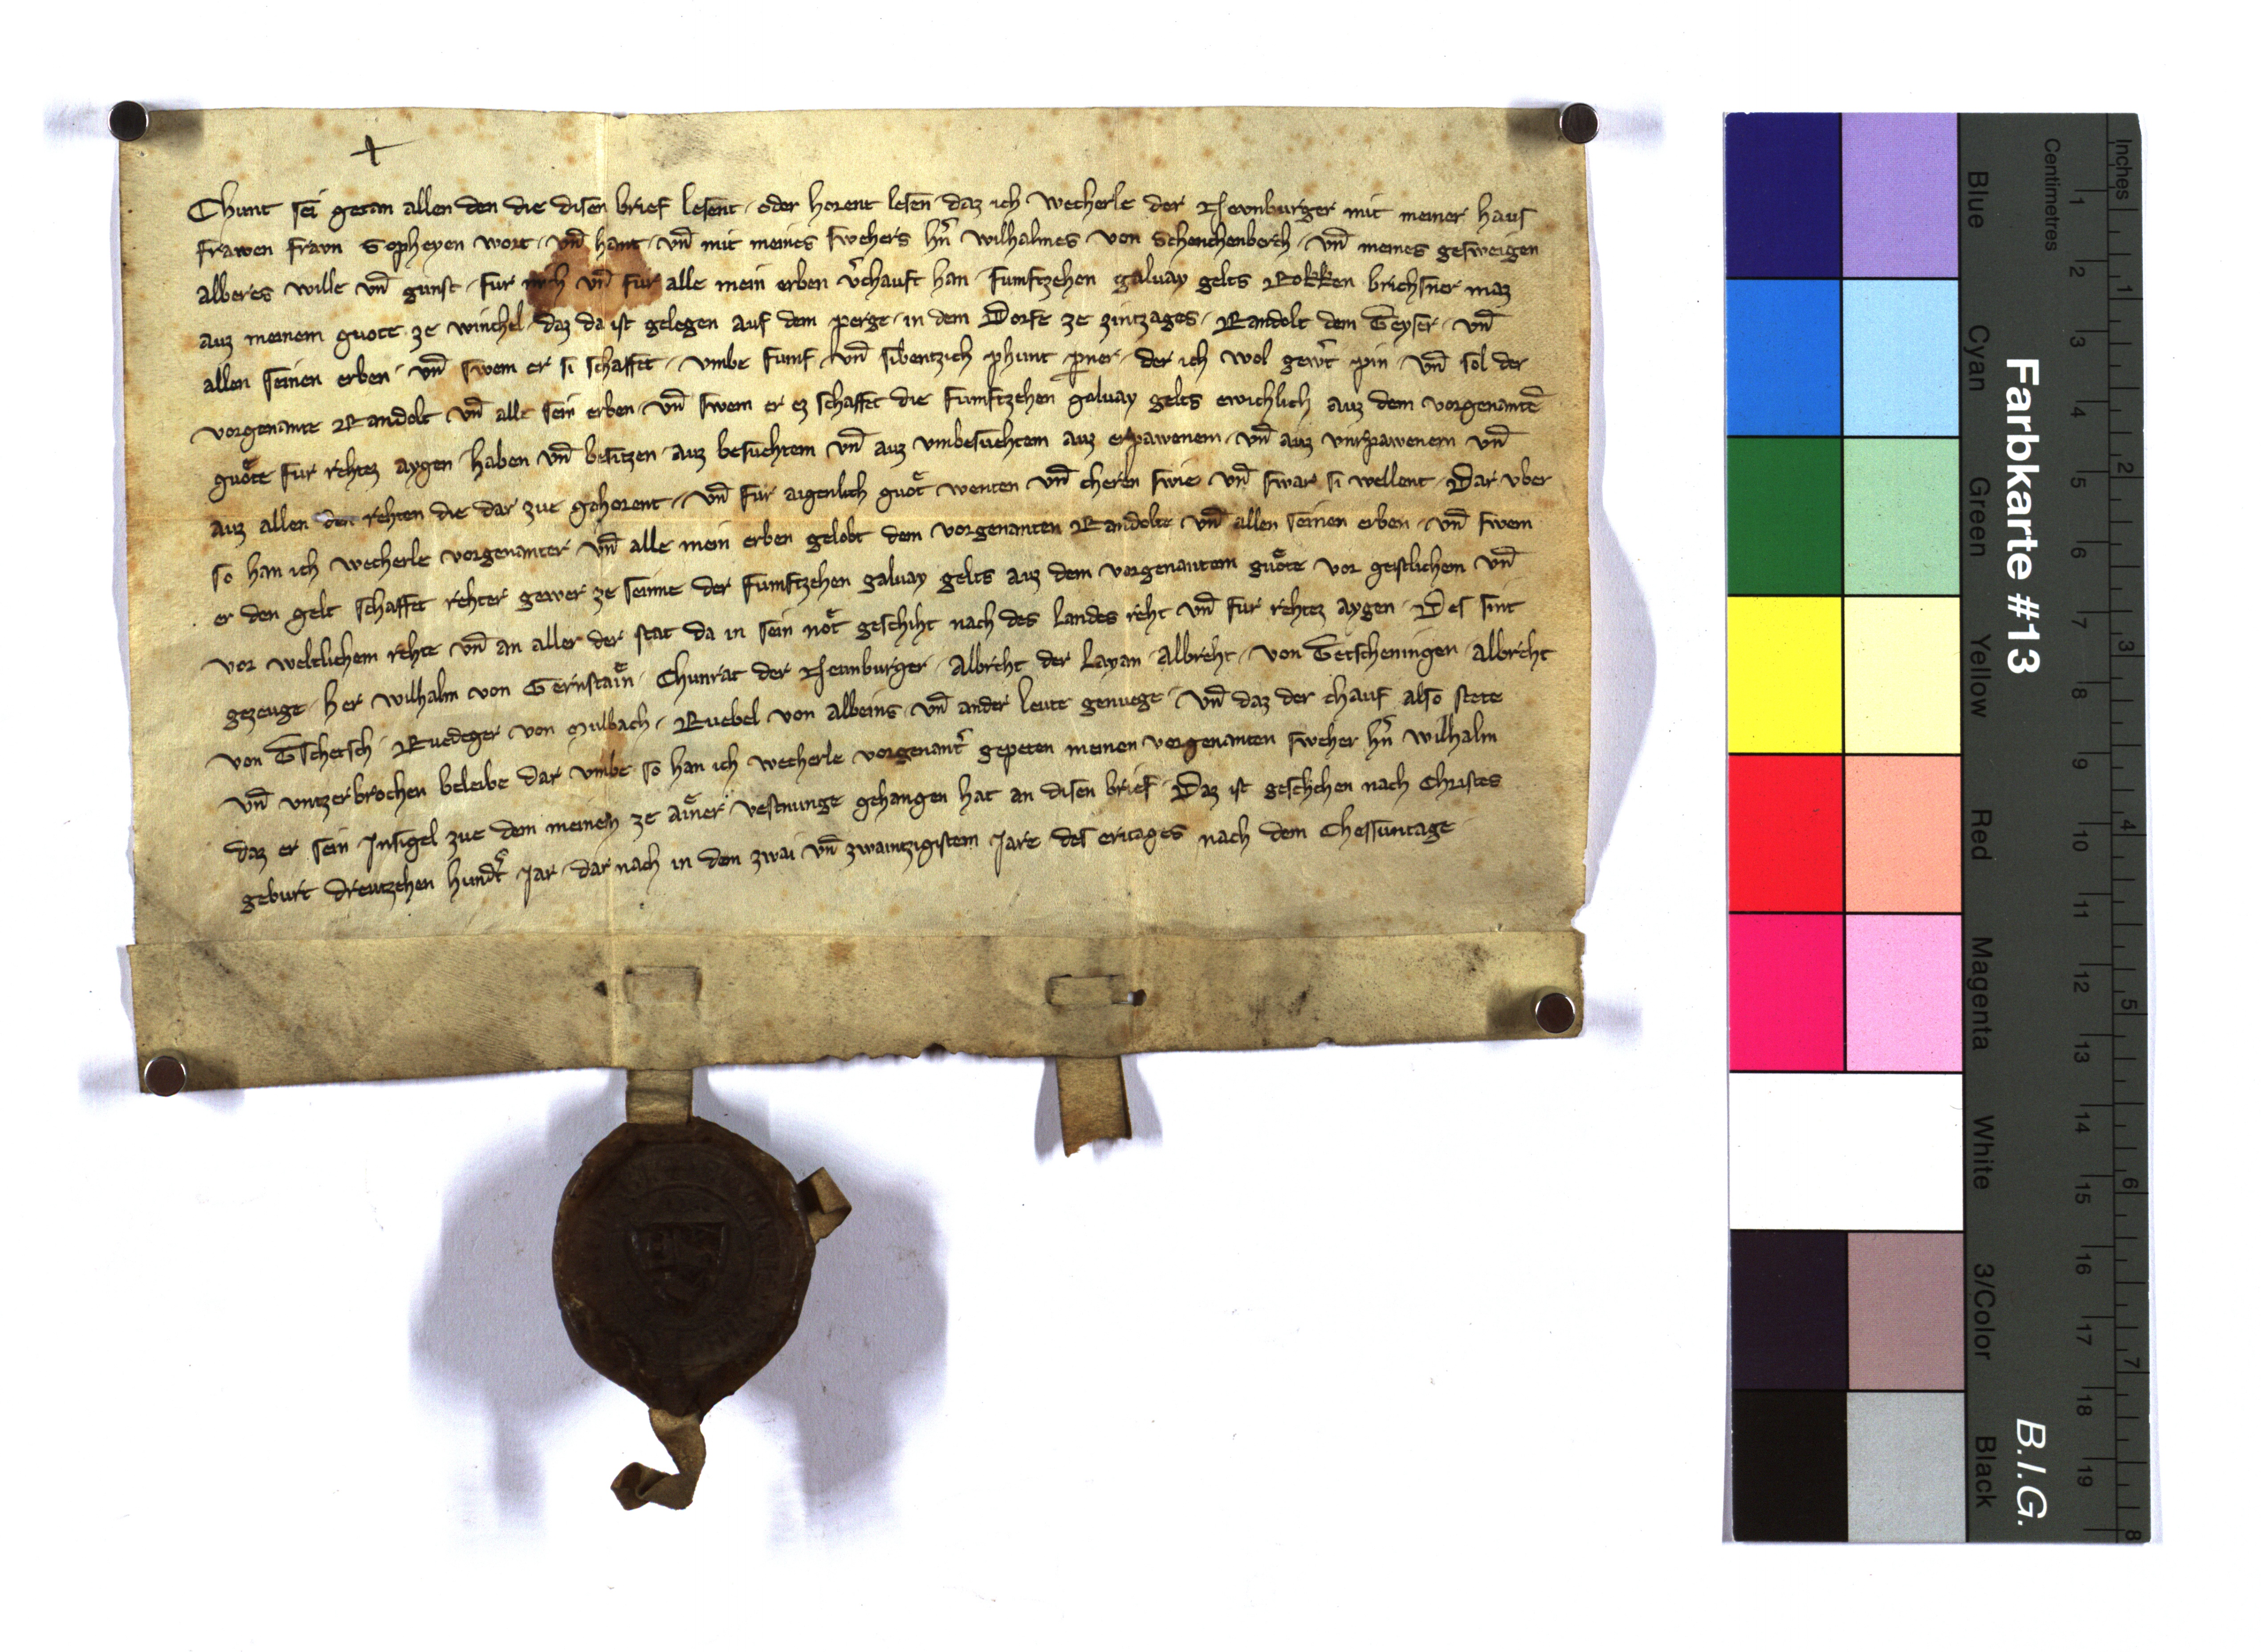 Chunt sei getan allen den die disen brief lesent · oder horent lesen · daz ich wecherle der Nevnburger mit meiner haus
frawen fravn Sopheyen wort · vn̄ hant · vn̄ mit meines swehers hn̄ wilhalmes · von Schenchenberch · vn̄ meines gesweigen
alberes wille vn̄ gunst · fur mich vn̄ fur alle mein erben v̾chauft han · fumftzehen galuay gelts Rokken brichsner maz
auz meinem guote ze winchel · daz da ist gelegen auf dem perge · in dem Dorfe ze zintzages · Randolt dem Teyser · vn̄
allen seinen erben · vn̄ swem er si schaffet · vmbe fumf vn̄ sibentzich phunt p̄ner · der ich wol gew̾t pin · vn̄ sol der
vorgenante Randolt vn̄ alle sein erben · vn̄ swem er ez schaffet die fumftzehen galuay gelts ewichlich auz dem vorgenantē
guo̊te fur rehtez aygen · haben vn̄ besitzen · auz besuchtem vn̄ auz vmbesuchtem auz erpawenem · vn̄ auz vnrpawenem vn̄
auz allen den rehten die dar zue gehorent · vn̄ fur aigenlich guo̊t wenten vn̄ cheren swie vn̄ swar si wellent · Dar vber
so han ich wecherle vorgenanter vn̄ alle mein erben gelobt dem vorgenanten Randolte vn̄ allen seinen erben · vn̄ swem
er den gelt schaffet rehter gewer ze seinne der fumftzehen galuay gelts auz dem vorgenantem guo̊te vor geistlichem vn̄
vor weltlichem rehte vn̄ an aller der stat da in sein not geschiht nach des landes reht vn̄ fur rehtez aygen · Des sint
gezeuge · her wilhalm von Gernstain · Chunrat der Neunburger · Albreht der Layan · Albreht · von Tetscheningen · Albreht
von Tschetsch · Ruedeger von Mulbach · Ruebel von albeins · vn̄ ander leute genuege · vn̄ daz der chauf also stete
vn̄ vntzerbrochen beleibe dar vmbe so han ich wecherle vorgenant̾ gepeten meinen vorgenanten sweher hn̄ wilhalm
daz er sein Insigel zue dem meinen ze ainer vestnunge gehangen hat an disen brief · Daz ist geschehen nach Christes
geburt dreutzehen hundt̾ Jar · dar nach in den zwai vn̄ zwaintzigistem Jare des eritages nach dem Chessuntage
Farbkarte #13
B.I.G.
Centimetres
Inches
Blue
Cyan
Green
Yellow
Red
Magenta
White
3/Color
Black
1 2 3 4 5 6 7 8 9 10 11 12 13 14 15 16 17 18 19
1 2 3 4 5 6 7 8